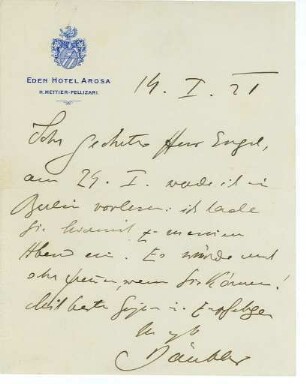 EDEN HOTEL AROSA
14. I. 21
Sehr geehrter Herr Engel,
am 29. I. werde ich in
Berlin vorlesen: ich lade
Sie hiermit zu meinem
Abend ein. Es würde mich
sehr freuen, wenn Sie können!
Mit besten
Ihr
Däubler